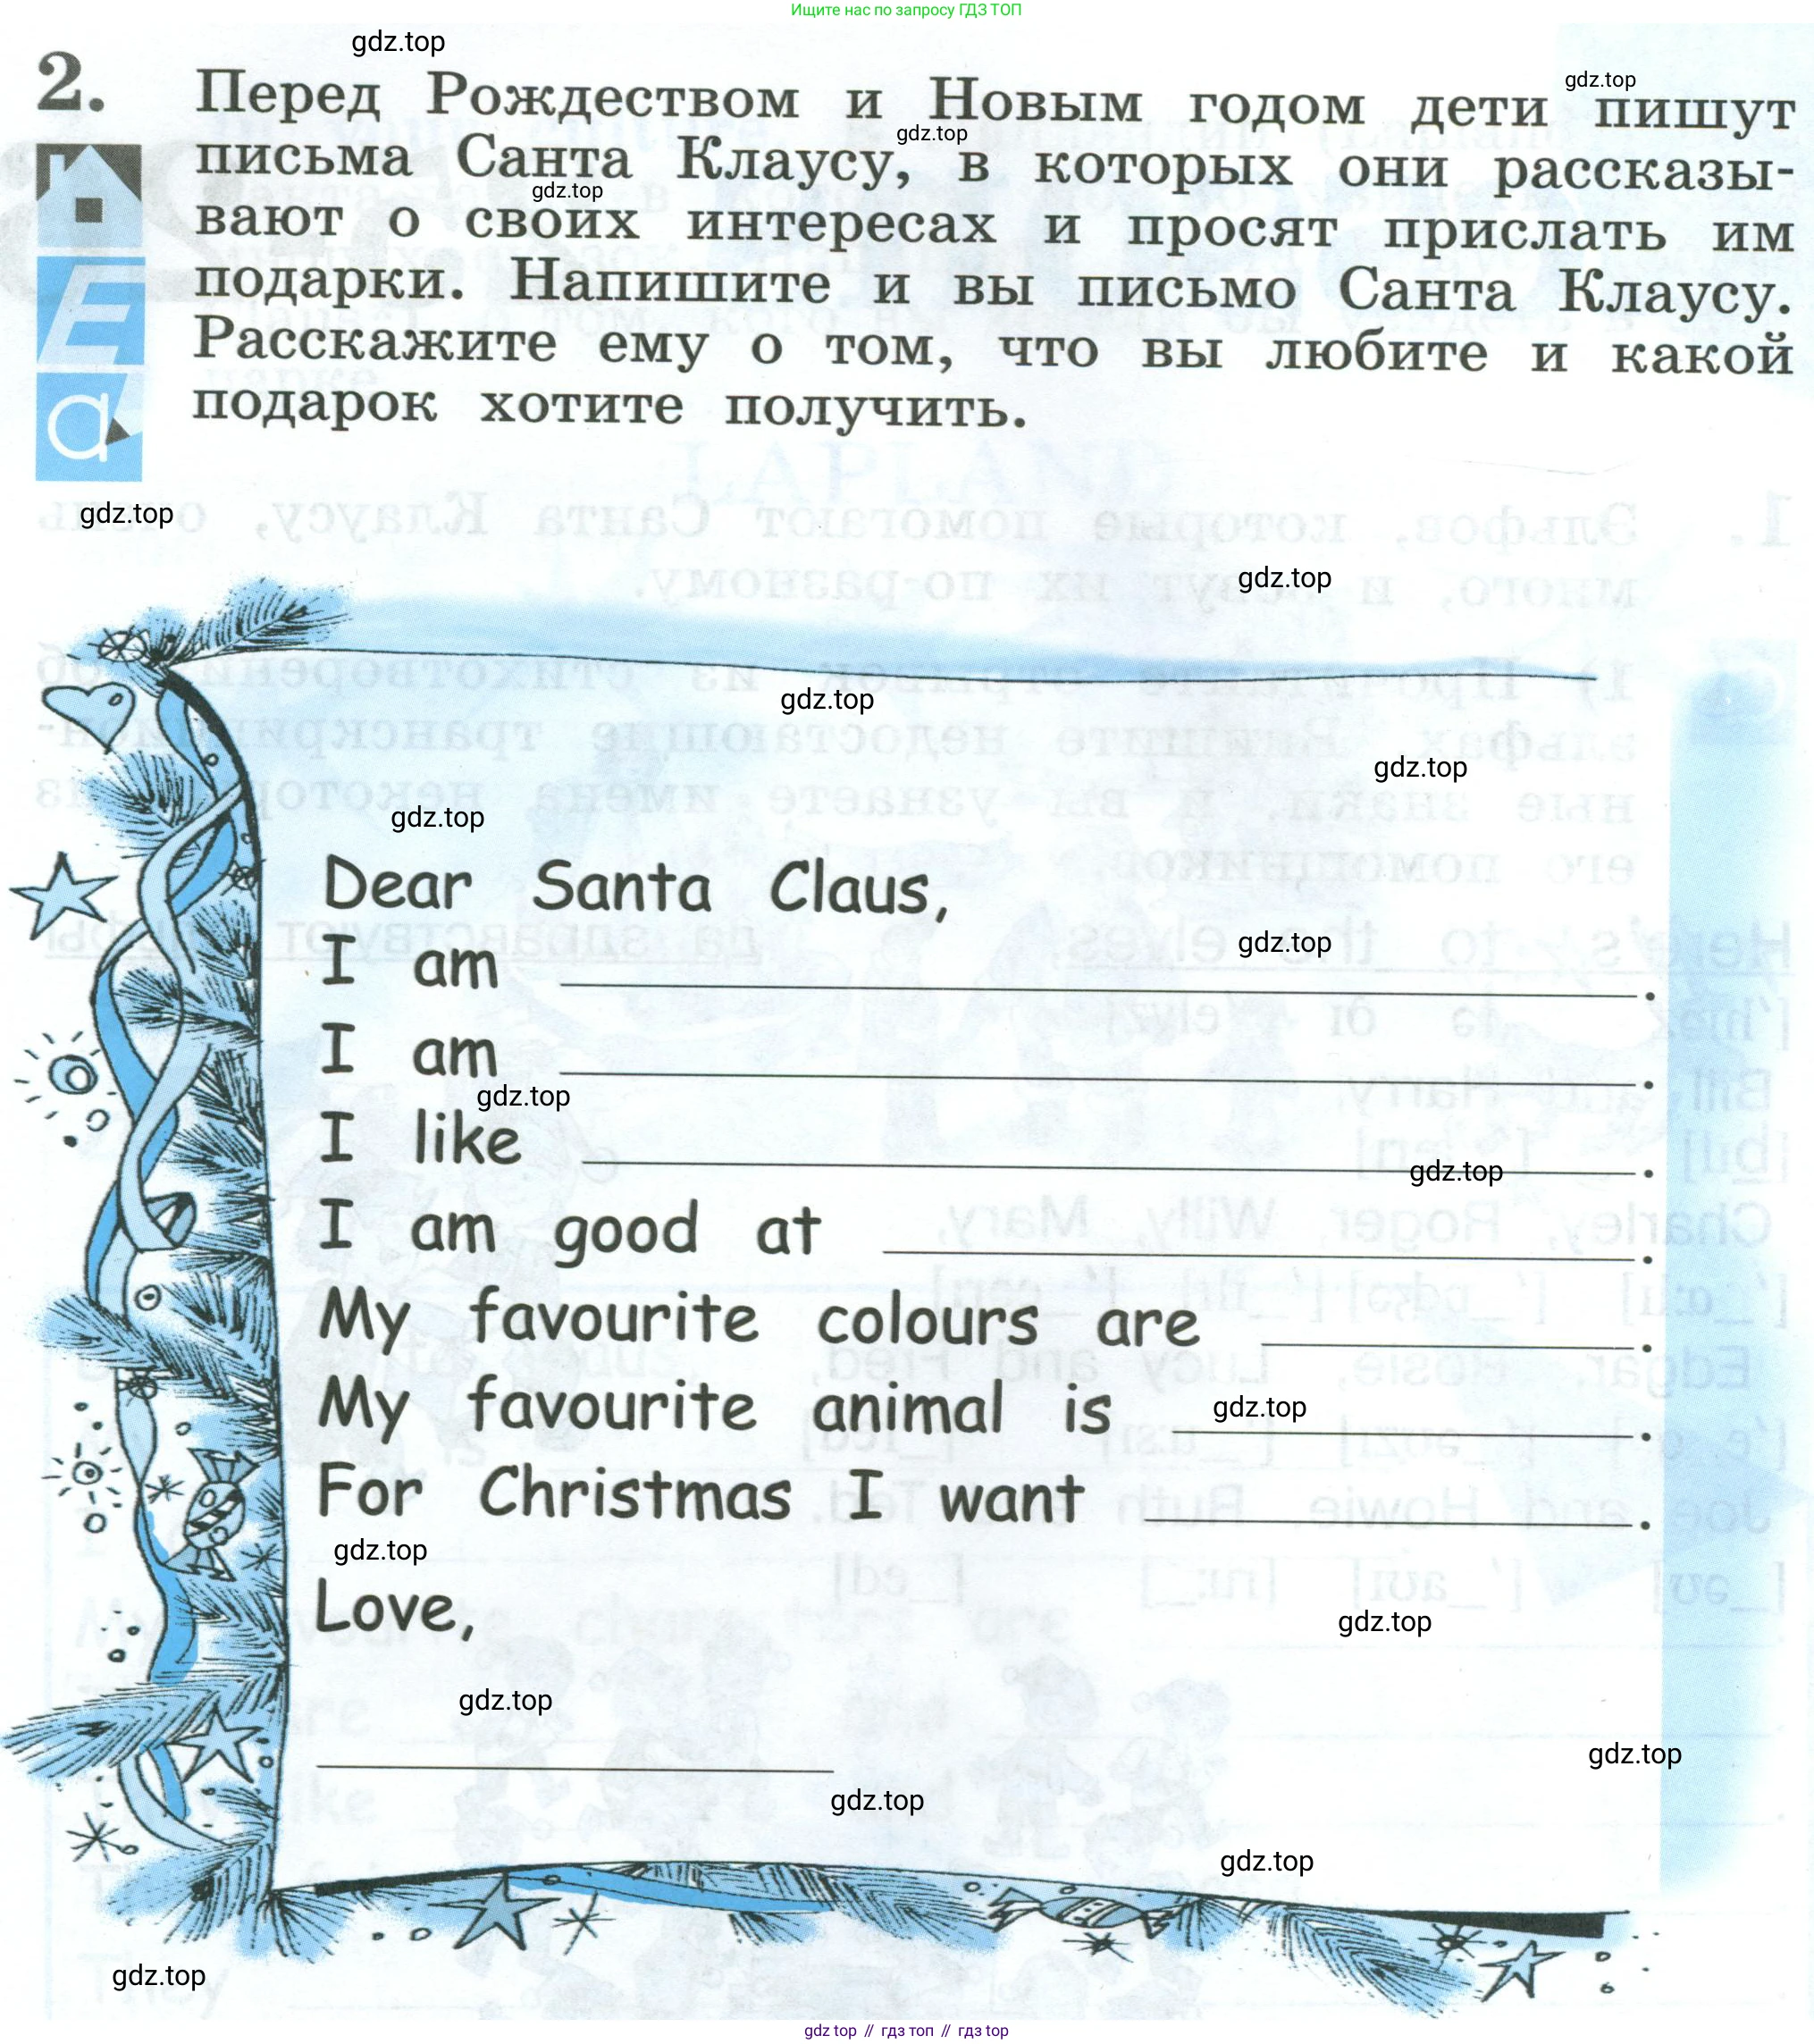 Ищите нас по запросу ГДЗ ТОП
gdz.top
2. Перед Рождеством и Новым годом дети пишут
gdz.top
gdz.top
письма Санта Клаусу, в которых они рассказы-
gdz.top
вают о своих интересах и просят прислать им
подарки. Напишите и вы письмо Санта Клаусу.
Расскажите ему о том, что вы любите и какой
подарок хотите получить.
a
gdz.top
LAPLAND
1. Эльфов, которые помогают Санта Клаусу, очень
gdz.top
много, и зовут их по-разному.
gdz.top
gdz.top
gdz.top
Dear Santa Claus,
gdz.top
I am .
I am .
gdz.top
I like .
gdz.top
I am good at .
My favourite colours are .
My favourite animal is .
gdz.top
For Christmas I want .
gdz.top
Love,
gdz.top
gdz.top
gdz.top
gdz.top
gdz.top
gdz.top
gdz top // гдз топ // гдз top